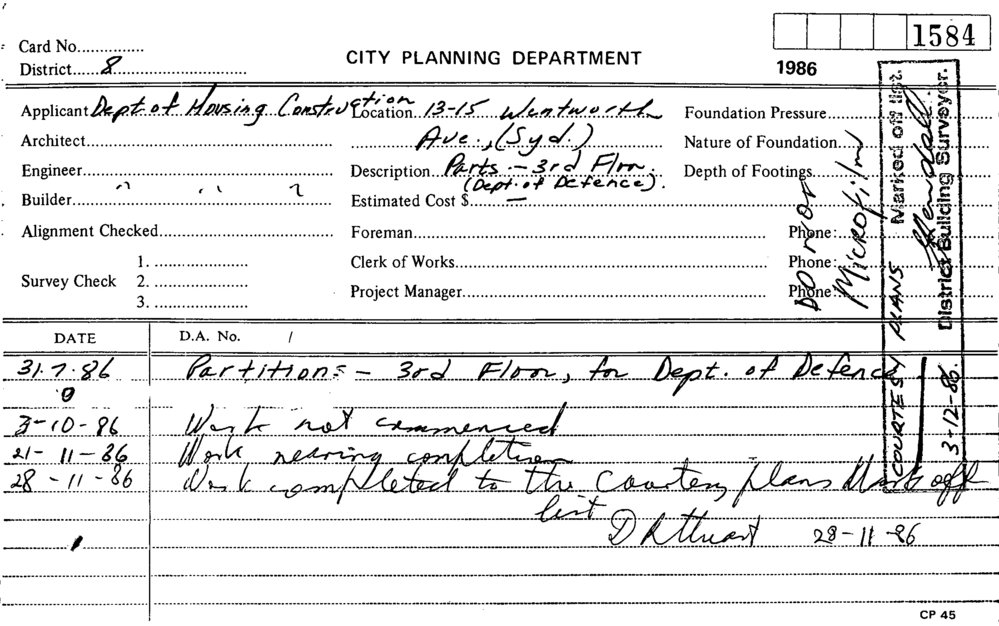 1584
Card No.
District 8
CITY PLANNING DEPARTMENT
1986
Applicant Dept of Housing Construction
Location 13-15 Wentworth
Ave., (Syd.)
Foundation Pressure
Architect
Nature of Foundation
Engineer
Description Parts - 3rd Floor
(Dept. of Defence).
Depth of Footings
Builder " " ?
Estimated Cost $ —
Alignment Checked
Foreman
Phone:
Survey Check 1.
2.
3.
Clerk of Works
Phone:
Project Manager
Phone:
DO NOT
Microfilm
COURTESY PLANS Marked off list.
3-12-86. District Building Surveyor.
DATE D.A. No. /
31.7.86 Partitions - 3rd Floor, for Dept. of Defence
3-10-86 Work not commenced
21-11-86 Work nearing completion
28-11-86 Work completed to the courtesy plans Mark off
list
28-11-86
CP 45